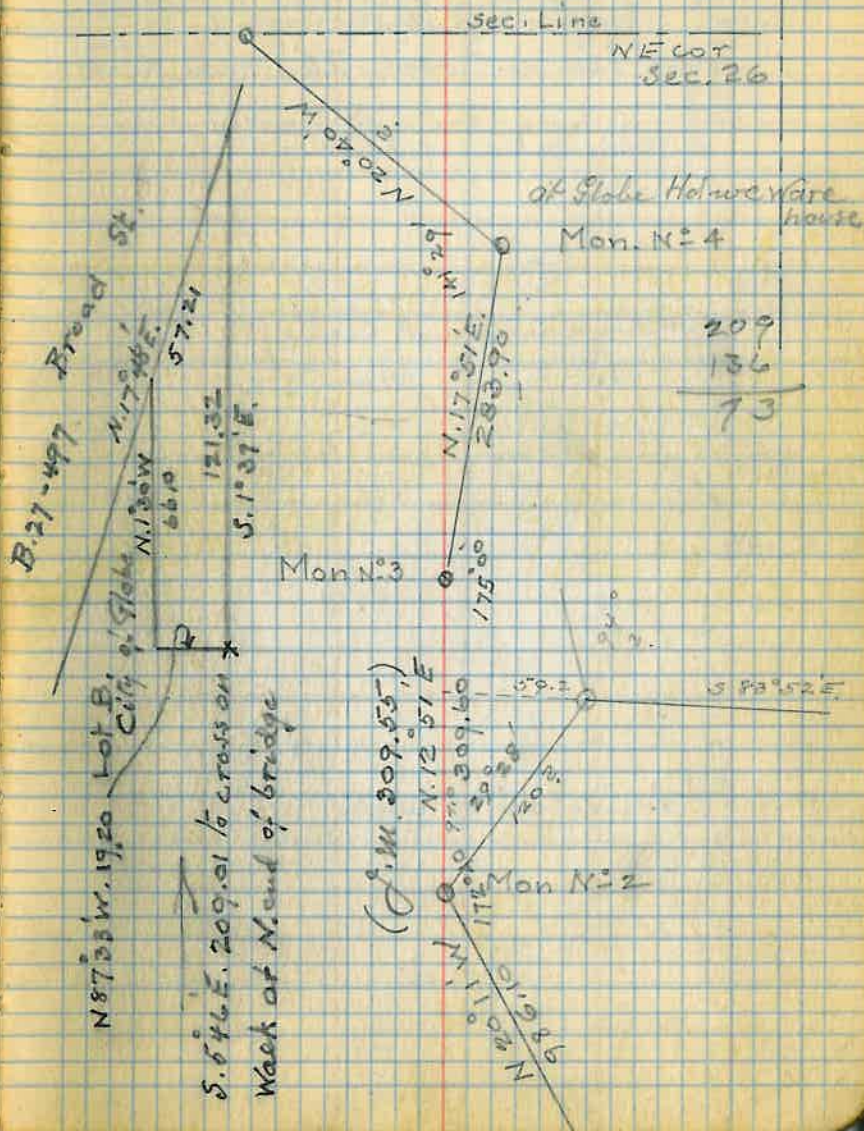 Sec. Line
NE cor
Sec. 26
N 20° 40' W
at Globe Hdwe Ware
house
Mon. No. 4
N. 17° 51' E.
283.90
209
136
73
B. 27-497 Broad St.
57.21
N. 1° 30' W
66.10
121.32
S. 1° 37' E.
Mon No. 3
175° 00'
Lot B.
City of Globe
N 87° 33' W. 19.20
S. 5° 46' E. 209.01 to cross on
Walk at N. end of bridge
(J.M. 309.55')
N. 12° 51' E
309.60
59.2
S 83° 52' E.
120.2
Mon No. 2
N 20° 11' W
986.10